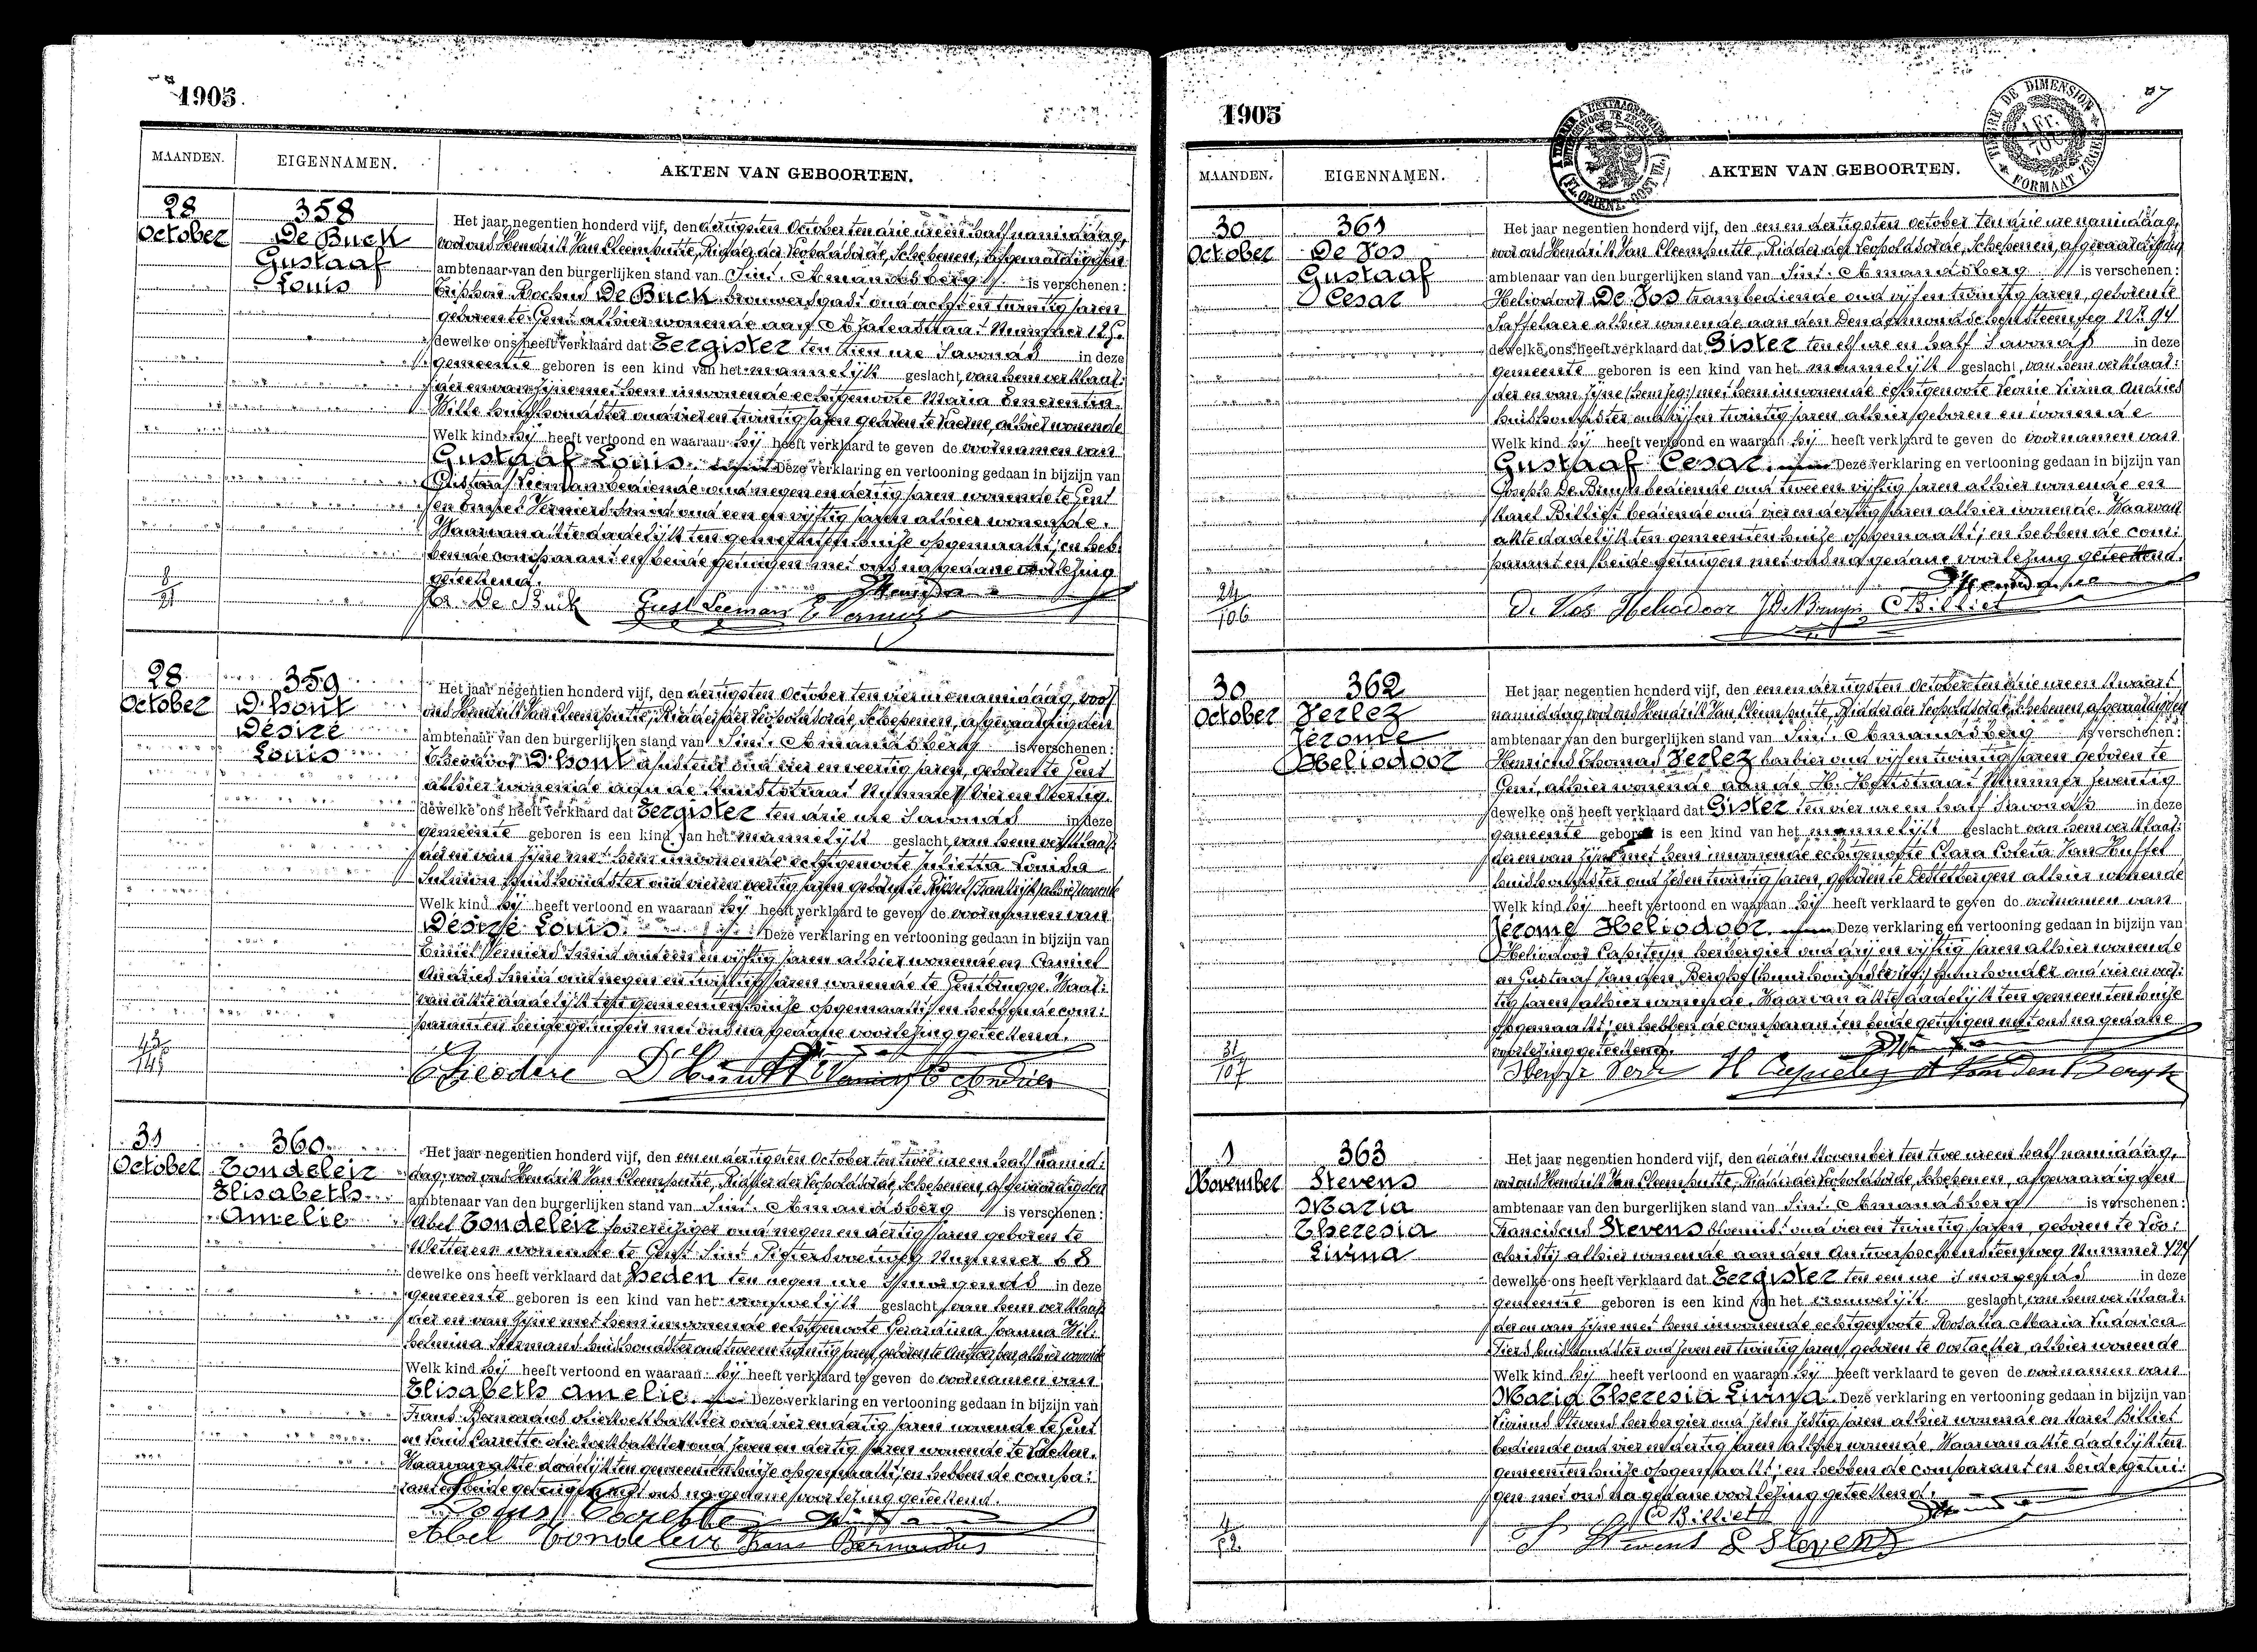 1905
MAANDEN.
EIGENNAMEN.
AKTEN VAN GEBOORTEN.
28
October
358
De Buck
Gustaaf
Louis
Het jaar negentien honderd vijf, den dertigsten October ten drie ure en half namiddag,
voor ons Hendrik Van Cleemputte, Ridder der Leopoldsorde, Schepenen, afgevaardigden
ambtenaar van den burgerlijken stand van Sint. Amandsberg is verschenen:
Rochus De Buck brouwersgast oud acht en twintig jaren
geboren te Gent alhier wonende aan Nummer
dewelke ons heeft verklaard dat Eergister ten tien ure s'avonds in deze
gemeente geboren is een kind van het mannelijk geslacht, van hem verklaar:
der en van zijne met hem inwonende echtgenoote Maria Emerentia
Wille huishoudster oud vier en twintig jaren geboren te Kaerne, alhier wonende
Welk kind hij heeft vertoond en waaraan hij heeft verklaard te geven de voornamen van
Gustaaf Louis. Deze verklaring en vertooning gedaan in bijzijn van
Gustaaf Leeman bediende oud negen en dertig jaren wonende te Gent
en Emiel Vermiers smid oud een en vijftig jaren alhier wonende.
Waarvan akte dadelijk ten gemeentenhuize opgemaakt; en heb:
bende comparant en beide getuigen met ons na gedane voorlezing
geteekend.
8
21
De Buck Gust Leeman
28
October
359
D'hont
Désiré
Louis
Het jaar negentien honderd vijf, den dertigsten October ten vier ure namiddag, voor
ons Hendrik Van Cleemputte, Ridder der Leopoldsorde, Schepenen, afgevaardigden
ambtenaar van den burgerlijken stand van Sint. Amandsberg is verschenen:
Theodoor D'hont oud vier en veertig jaren, geboren te Gent
alhier wonende aan de Nummer vier en veertig.
dewelke ons heeft verklaard dat Eergister ten drie ure s'avonds in deze
gemeente geboren is een kind van het mannelijk geslacht, van hem verklaar:
der en van zijne met hem inwonende echtgenoote Julietta Louisa
huishoudster oud vier en veertig jaren geboren te Frankrijk, alhier wonende
Welk kind hij heeft vertoond en waaraan hij heeft verklaard te geven de voornamen van
Désiré Louis. Deze verklaring en vertooning gedaan in bijzijn van
Emiel Vermiers smid oud een en vijftig jaren alhier wonende en Camiel
Andries smid oud negen en twintig jaren wonende te Gentbrugge. Waar:
van akte dadelijk ten gemeentenhuize opgemaakt; en hebbende com:
parant en beide getuigen met ons na gedane voorlezing geteekend.
43
145
Theodore D'Hondt
31
October
360
Tondeleir
Elisabeth
Amelie
Het jaar negentien honderd vijf, den een en dertigsten October ten twee ure en half namid:
dag, voor ons Hendrik Van Cleemputte, Ridder der Leopoldsorde, Schepenen, afgevaardigden
ambtenaar van den burgerlijken stand van Sint. Amandsberg is verschenen:
Abel Tondeleir oud negen en dertig jaren geboren te
Wetteren wonende te Gent Sint Nummer 68
dewelke ons heeft verklaard dat Heden ten negen ure s'morgends in deze
gemeente geboren is een kind van het vrouwelijk geslacht, van hem verklaar
der en van zijne met hem inwonende echtgenoote Gerardina Joanna Wil:
helmina huishoudster oud twee en twintig jaren, geboren te Antwerpen, alhier wonende
Welk kind hij heeft vertoond en waaraan hij heeft verklaard te geven de voornamen van
Elisabeth Amelie. Deze verklaring en vertooning gedaan in bijzijn van
Frans Bernardus oud vier en dertig jaren wonende te Gent
en Louis Carrette oud zeven en dertig jaren wonende te
Waarvan akte dadelijk ten gemeentenhuize opgemaakt; en hebben de compa:
rant en beide getuigen met ons na gedane voorlezing geteekend.
Louis Carrette
Abel Tondeleir Frans Bernardus
1905
TIMBRE DE DIMENSION
FORMAAT ZEGEL
1 Fr.
MAANDEN.
EIGENNAMEN.
AKTEN VAN GEBOORTEN.
30
October
361
De Vos
Gustaaf
Cesar
Het jaar negentien honderd vijf, den een en dertigsten october ten drie ure namiddag,
voor ons Hendrik Van Cleemputte, Ridder der Leopoldsorde, Schepenen, afgevaardigden
ambtenaar van den burgerlijken stand van Sint. Amandsberg is verschenen:
Heliodoor De Vos trambediende oud vijf en twintig jaren, geboren te
Saffelaere alhier wonende aan den Dendermondschensteenweg Nr. 94
dewelke ons heeft verklaard dat Gister ten elf ure en half s'avonds in deze
gemeente geboren is een kind van het mannelijk geslacht, van hem verklaar:
der en van zijne (hem zeg:) met hem inwonende echtgenoote Leonie Livina Andries
huishoudster oud vijf en twintig jaren alhier geboren en wonende
Welk kind hij heeft vertoond en waaraan hij heeft verklaard te geven de voornamen van
Gustaaf Cesar. Deze verklaring en vertooning gedaan in bijzijn van
Joseph De Bruyn bediende oud twee en vijftig jaren alhier wonende en
Karel Billiet bediende oud vier en dertig jaren alhier wonende. Waarvan
akte dadelijk ten gemeentenhuize opgemaakt; en hebben de com:
parant en beide getuigen met ons na gedane voorlezing geteekend.
24
106
De Vos Heliodoor J De Bruyn C Billiet
30
October
362
Verlez
Jérome
Heliodoor
Het jaar negentien honderd vijf, den een en dertigsten October ten drie ure en kwart
namiddag, voor ons Hendrik Van Cleemputte, Ridder der Leopoldsorde, Schepenen, afgevaardigden
ambtenaar van den burgerlijken stand van Sint. Amandsberg is verschenen:
Henricus Thomas Verlez barbier oud vijf en twintig jaren geboren te
Gent, alhier wonende aan de H. Hertstraat Nummer zeventig
dewelke ons heeft verklaard dat Gister ten vier ure en half s'avonds in deze
gemeente geboren is een kind van het mannelijk geslacht van hem verklaar:
der en van zijne met hem inwonende echtgenoote Clara Coleta Van Huffel
huishoudster oud zes en twintig jaren, geboren te Destelbergen alhier wonende
Welk kind hij heeft vertoond en waaraan hij heeft verklaard te geven de voornamen van
Jérome Heliodoor. Deze verklaring en vertooning gedaan in bijzijn van
Heliodoor Capiteyn herbergier oud drij en vijftig jaren alhier wonende
en Gustaaf Van den Berghe (huurhoudster zeg:) huurhouder oud vier en veer:
tig jaren alhier wonende. Waarvan akte dadelijk ten gemeentenhuize
opgemaakt; en hebben de comparant en beide getuigen met ons na gedane
voorlezing geteekend.
31
107
1
November
363
Stevens
Maria
Theresia
Livina
Het jaar negentien honderd vijf, den derden November ten twee ure en half namiddag,
voor ons Hendrik Van Cleemputte, Ridder der Leopoldsorde, Schepenen, afgevaardigden
ambtenaar van den burgerlijken stand van Sint. Amandsberg is verschenen:
Franciscus Stevens bloemist oud vier en twintig jaren, geboren te Loo:
christij alhier wonende aan den Antwerpschensteenweg Nummer
dewelke ons heeft verklaard dat Eergister ten een ure s'morgends in deze
gemeente geboren is een kind van het vrouwelijk geslacht, van hem verklaar:
der en van zijne met hem inwonende echtgenoote Rosalia Maria Ludovica
Siers huishoudster oud zeven en twintig jaren, geboren te Oostacker, alhier wonende
Welk kind hij heeft vertoond en waaraan hij heeft verklaard te geven de voornamen van
Maria Theresia Livina. Deze verklaring en vertooning gedaan in bijzijn van
Livinus Stevens herbergier oud zes en zestig jaren alhier wonende en Karel Billiet
bediende oud vier en dertig jaren alhier wonende. Waarvan akte dadelijk ten
gemeentenhuize opgemaakt; en hebben de comparant en beide getui:
gen met ons na gedane voorlezing geteekend.
C Billiet
4
52
F Stevens L Stevens